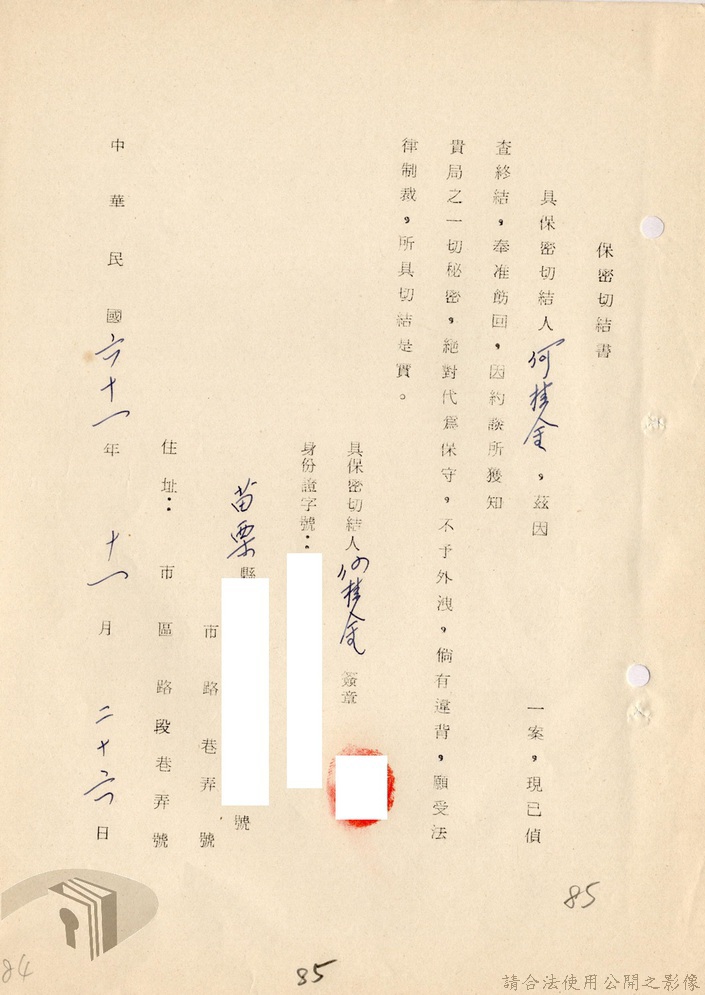 保密切結書
具保密切結人何桂金,茲因　一案,現已偵
查終結,奉准飭回,因約談所獲知
貴局之一切秘密,絕對代為保守,不予外洩,倘有違背,願受法
律制裁,所具切結是實。
具保密切結人何桂金簽章
身份證字號:
苗栗縣　號
市路巷弄號
住址:市區路段巷弄號
中華民國六十一年十一月二十六日
85
85
84
請合法使用公開之影像